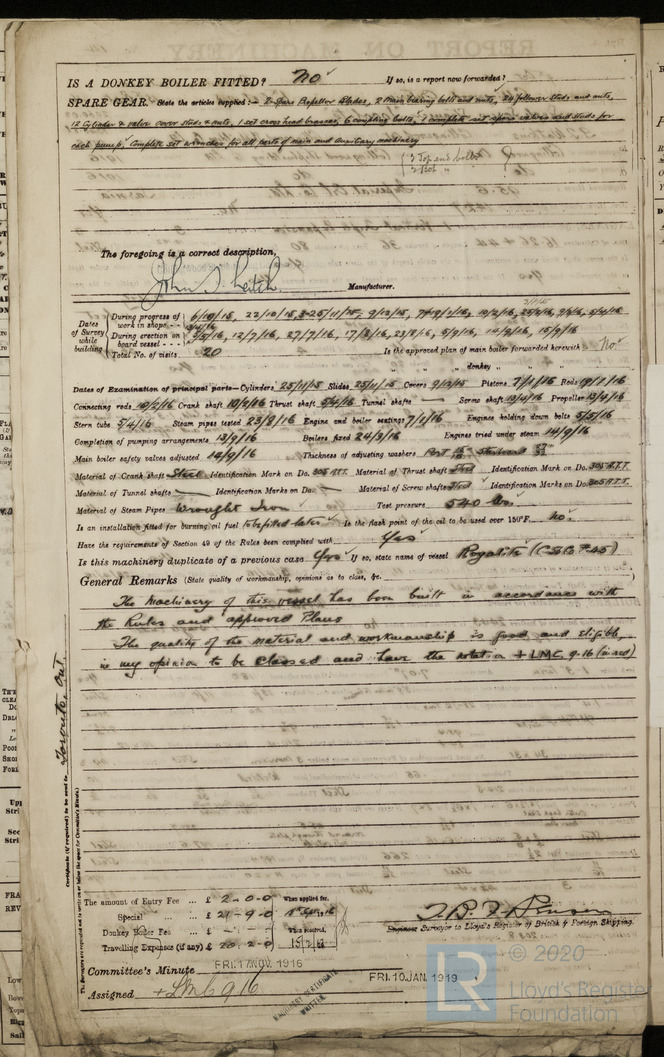 IS A DONKEY BOILER FITTED? No If so, is a report now forwarded?
SPARE GEAR. State the articles supplied:- 2 Spare Propellor Blades, 2 Main bearing bolts and nuts, 24 follower studs and nuts,
12 Cylinder & valve cover studs & nuts, 1 set cross head brasses, 6 coupling bolts, 1 complete set spare valves and studs for
each pump, Complete set wrenches for all parts of main and auxiliary machinery
3 Top end bolts
2 Bot "
The foregoing is a correct description,
John S. Leitch. Manufacturer.
Dates of Survey while building
During progress of work in shops - - 6/10/15, 22/10/15, 25/11/15, 9/12/15, 10/2/16
During erection on board vessel - - 12/7/16, 27/7/16, 17/8/16, 23/8/16, 5/9/16, 15/9/16
Total No. of visits 20 Is the approved plan of main boiler forwarded herewith No
" " " donkey " " "
Dates of Examination of principal parts—Cylinders 25/11/15 Slides 25/11/15 Covers 9/12/15 Pistons 7/1/16 Rods 7/1/16
Connecting rods 10/2/16 Crank shaft 10/2/16 Thrust shaft 5/4/16 Tunnel shafts — Screw shaft 13/4/16 Propeller 13/4/16
Stern tube 5/4/16 Steam pipes tested 23/8/16 Engine and boiler seatings 7/1/16 Engines holding down bolts 5/5/16
Completion of pumping arrangements 13/9/16 Boilers fixed 24/8/16 Engines tried under steam 14/9/16
Main boiler safety valves adjusted 14/9/16 Thickness of adjusting washers Port Starboard
Material of Crank shaft Steel Identification Mark on Do. 305 R.T.T. Material of Thrust shaft Steel Identification Mark on Do. 305 R.T.T.
Material of Tunnel shafts — Identification Marks on Do. — Material of Screw shafts Steel Identification Marks on Do. 305 R.T.T.
Material of Steam Pipes Wrought Iron Test pressure 540 lbs.
Is an installation fitted for burning oil fuel to be fitted later Is the flash point of the oil to be used over 150°F. No.
Have the requirements of Section 49 of the Rules been complied with Yes
Is this machinery duplicate of a previous case Yes If so, state name of vessel Royalite (C.S.Co. # 45)
General Remarks (State quality of workmanship, opinions as to class, &c.
The Machinery of this vessel has been built in accordance with
the Rules and approved Plans
The quality of the material and workmanship is good and eligible
in my opinion to be classed and have the notation + LMC 9-16 (in red)
Certificate (if required) to be sent to Toronto, Ont.
The Surveyors are requested not to write on or below the space for Committee's Minute.
The amount of Entry Fee ... £ 2-0-0 When applied for,
Special ... £ 21-9-0
Donkey Boiler Fee ... £ - - - When received,
Travelling Expenses (if any) £ 20.2.0
Engineer Surveyor to Lloyd's Register of British & Foreign Shipping.
Committee's Minute FRI. 17 NOV. 1916 FRI. 10 JAN. 1919
Assigned + LMC 9.16
MACHINERY CERTIFICATE WRITTEN
LR
© 2020
Lloyd's Register
Foundation